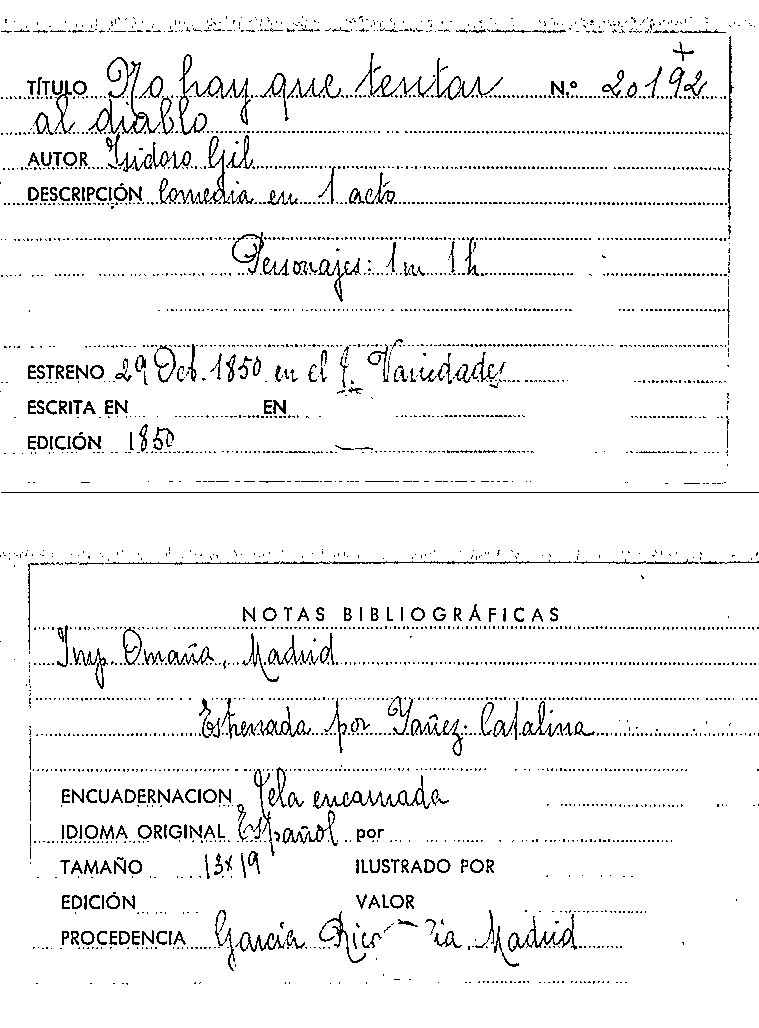 +
TÍTULO No hay que tentar N.º 20192
al diablo
AUTOR Isidoro Gil
DESCRIPCIÓN Comedia en 1 acto
Personajes: 1 m 1 h
ESTRENO 29 Oct. 1850 en el T. Variedades
ESCRITA EN EN
EDICIÓN 1850
NOTAS BIBLIOGRÁFICAS
Imp. Omaña, Madrid
Estrenada por Yañez-Catalina
ENCUADERNACION Tela encarnada
IDIOMA ORIGINAL Español por
TAMAÑO 13x19 ILUSTRADO POR
EDICIÓN VALOR
PROCEDENCIA García Rico Madrid